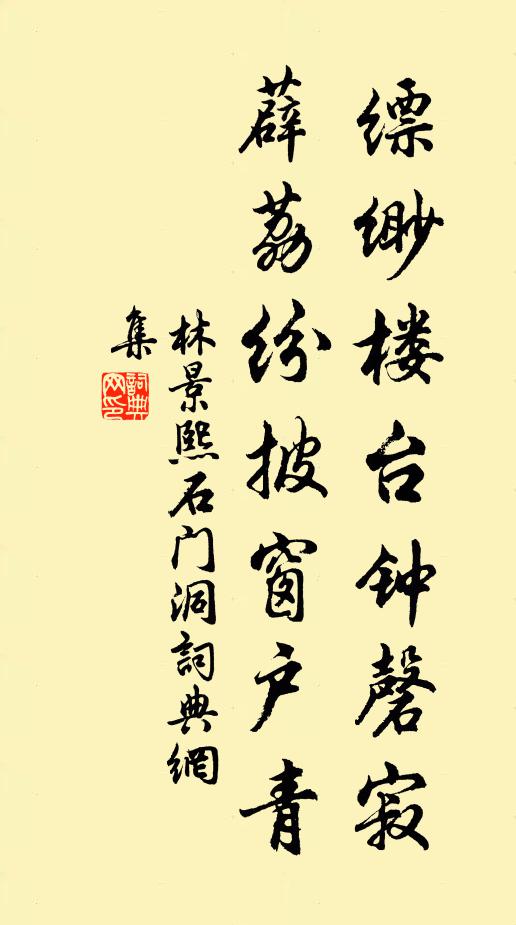 缥缈楼台钟磬寂
薜荔纷披窗户青
林景熙石门洞詞典網
集
詞典网印